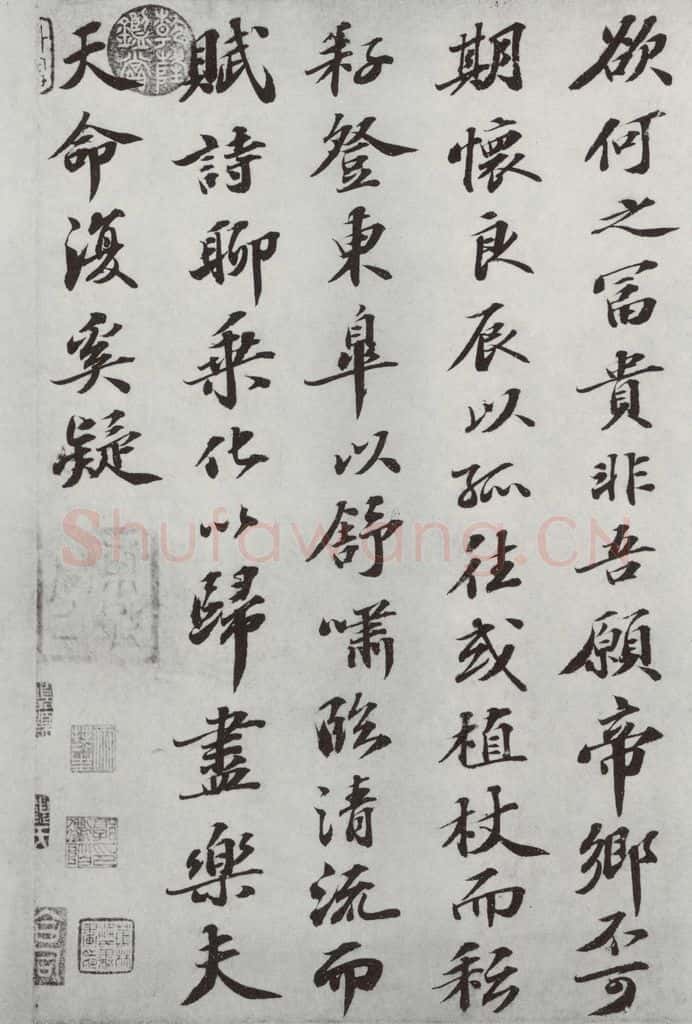 欲何之冨貴非吾願帝鄉不可
期懷良辰以孤往或植杖而耘
耔登東皐以舒嘯臨清流而
賦詩聊乗化以歸盡樂夫
天命復奚疑
乾隆鑑賞
Shufawang.CN